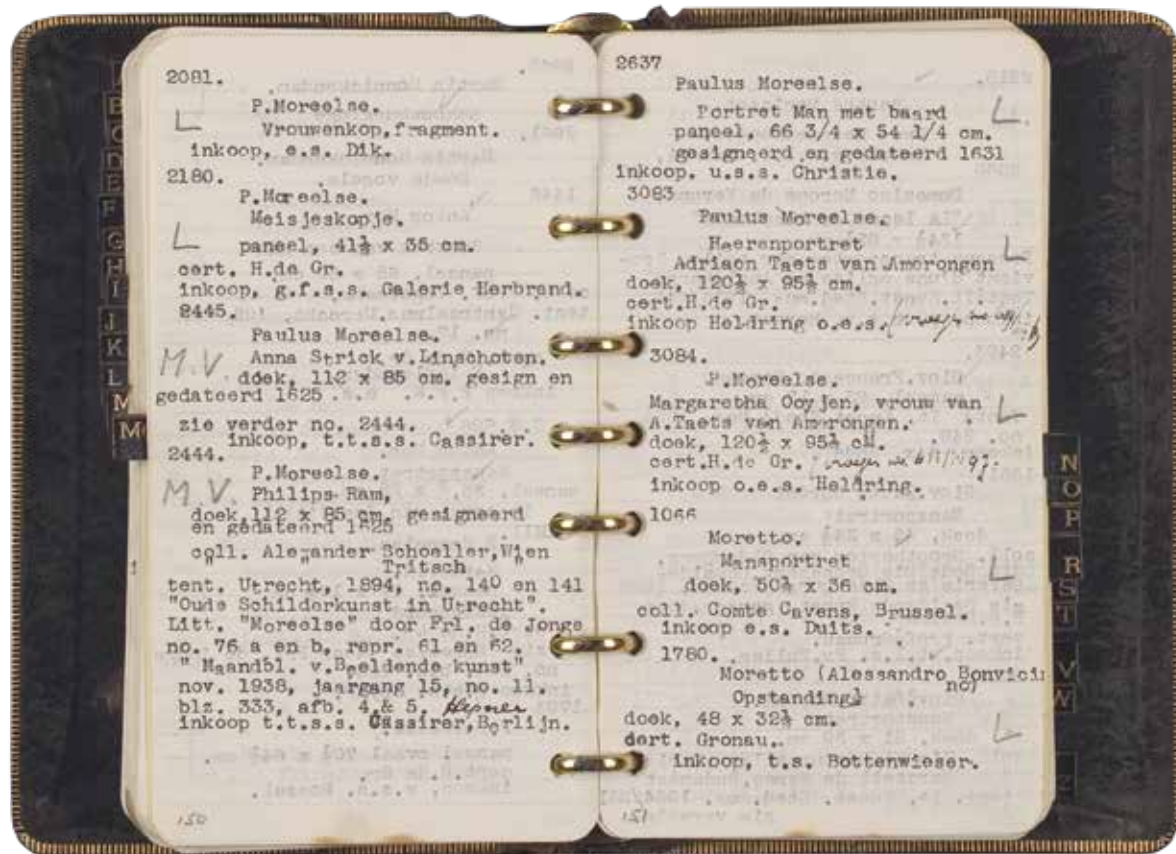 2081.
P.Moreelse.
Vrouwenkop, fragment.
inkoop, e.s. Dik.
2180.
P.Moreelse.
Meisjeskopje.
paneel, 41½ x 35 cm.
cert. H.de Gr.
inkoop, g.f.s.s. Galerie Herbrand.
2445.
Paulus Moreelse.
M.V. Anna Strick v.Linschoten.
doek, 112 x 85 cm. gesign en
gedateerd 1625
zie verder no. 2444.
inkoop, t.t.s.s. Cassirer.
2444.
P.Moreelse.
M.V. Philips Ram,
doek, 112 x 85 cm. gesigneerd
en gedateerd 1625
coll. Alexander Schoeller, Wien
" " Tritsch "
tent. Utrecht, 1894, no. 140 en 141
"Oude Schilderkunst in Utrecht".
Litt. "Moreelse" door Frl. de Jonge
no. 76 a en b, repr. 61 en 62.
" Maandbl. v.Beeldende kunst"
nov. 1938, jaargang 15, no. 11.
blz. 333, afb. 4 & 5.
inkoop t.t.s.s. Cassirer, Berlijn.
120
2637
Paulus Moreelse.
Portret Man met baard
paneel, 66 3/4 x 54 1/4 cm.
gesigneerd en gedateerd 1631
inkoop. u.s.s. Christie.
3083
Paulus Moreelse.
Heerenportret
Adriaen Taets van Amerongen
doek, 120½ x 95½ cm.
cert.H.de Gr.
inkoop Heldring o.e.s.
3084.
P.Moreelse.
Margaretha Ooyjen, vrouw van
A.Taets van Amerongen.
doek, 120½ x 95½ cM.
cert.H.de Gr. vroeger
inkoop o.e.s. Heldring.
1066
Moretto.
Mansportret
doek, 50½ x 36 cm.
coll. Comte Cavens, Brussel.
inkoop e.s. Duits.
1780.
Moretto (Alessandro Bonvicin
no)
Opstanding
doek, 48 x 32½ cm.
dert. Gronau.
inkoop, t.s. Bottenwieser.
121
B
C
D
E
F
G
H
I
J
K
L
M
N
O
P
R
S
T
V
W
Z